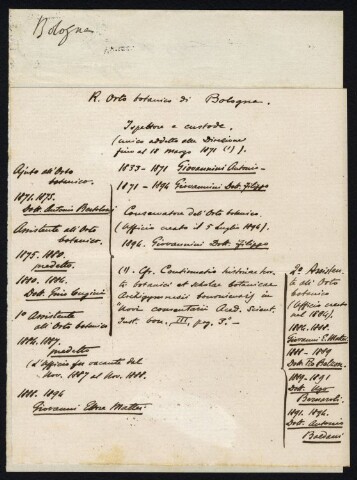 Bologna
R. Orto botanico di Bologna.
Ispettore e custode.
(unico addetto alla Direzione
fino al 18 Marzo 1871 (1)).
1833-1871 Giovannini Antonio
1871-1896 Giovannini Dott. Filippo
Conservatore dell'Orto botanico.
(Ufficio creato il 5 Luglio 1896).
1896. Giovannini Dott. Filippo
(1) Cfr. Continuatio historiae hor-
ti botanici et scholae botanicae
Archigymnasii bononiensis in
"Novi comentarii Acad. Scient.
Inst. bon., III, pag. 3."
Ajuto all'Orto
botanico.
1871.1875.
Dott. Antonio Bertoloni
Assistente all'Orto
botanico.
1875. 1880.
medesimo
1880. 1886.
Dott. Gino Cugini
1º Assistente
all'Orto botanico
1886. 1887.
medesimo
(L'ufficio fu vacante dal
Nov. 1887 al Nov. 1888.
1888. 1896
Giovanni Ettore Mattei
2º Assisten-
te all'Orto
botanico
(Ufficio creato
nel 1886).
1886. 1888.
Giovanni E. Mattei
1888-1889
1889-1891
Dott. Ugo
1891. 1896.
Dott. Antonio
Baldacci